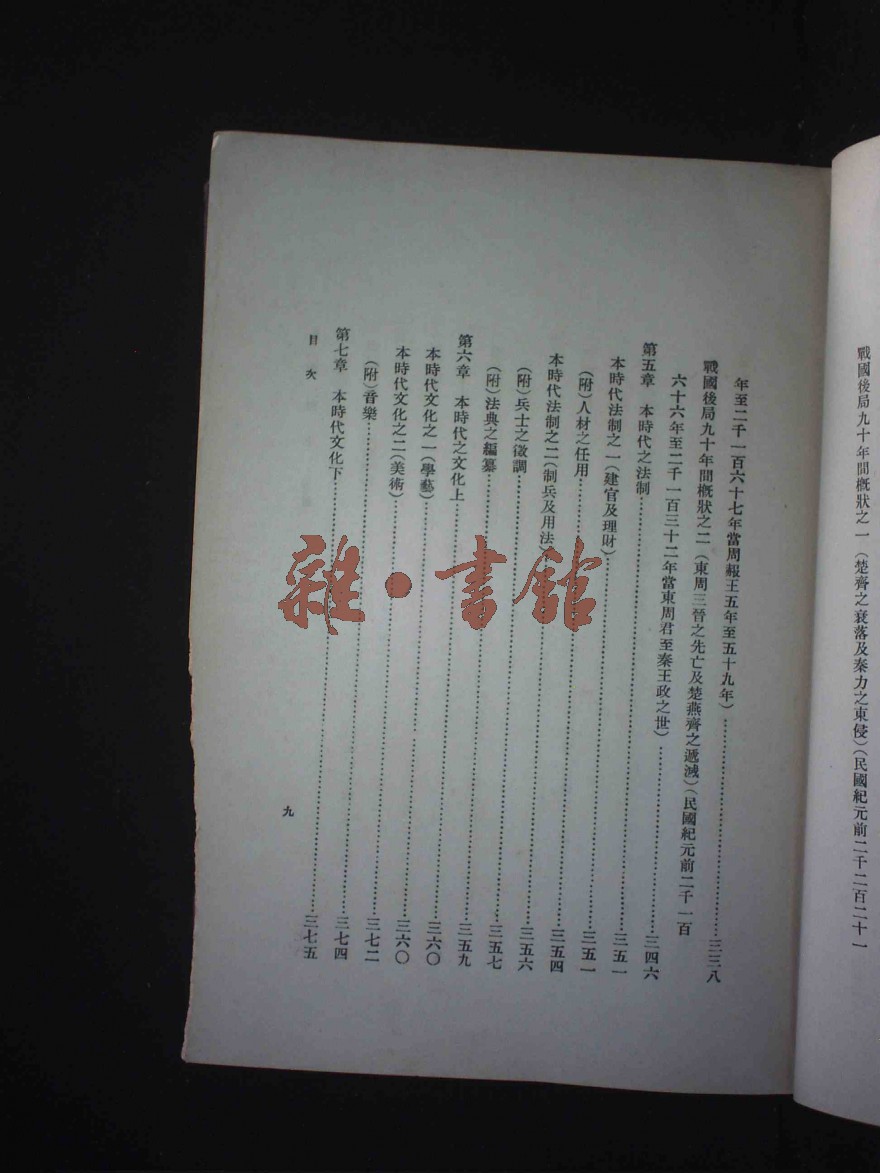 戰國後局九十年間概狀之一(楚齊之衰落及秦力之東侵)(民國紀元前二千二百二十一
年至二千一百六十七年當周赧王五年至五十九年)……三三八
戰國後局九十年間概狀之二(東周三晉之先亡及楚燕齊之遞滅)(民國紀元前二千一百
六十六年至二千一百三十二年當東周君至秦王政之世)……三四六
第五章 本時代之法制……三五一
本時代法制之一(建官及理財)……三五一
(附)人材之任用……三五四
本時代法制之二(制兵及用法)……三五六
(附)兵士之徵調……三五七
(附)法典之編纂……三五九
第六章 本時代之文化上……三六〇
本時代文化之一(學藝)……三六〇
本時代文化之二(美術)……三七二
(附)音樂……三七四
第七章 本時代文化下……三七五
目次 九
雜·書館